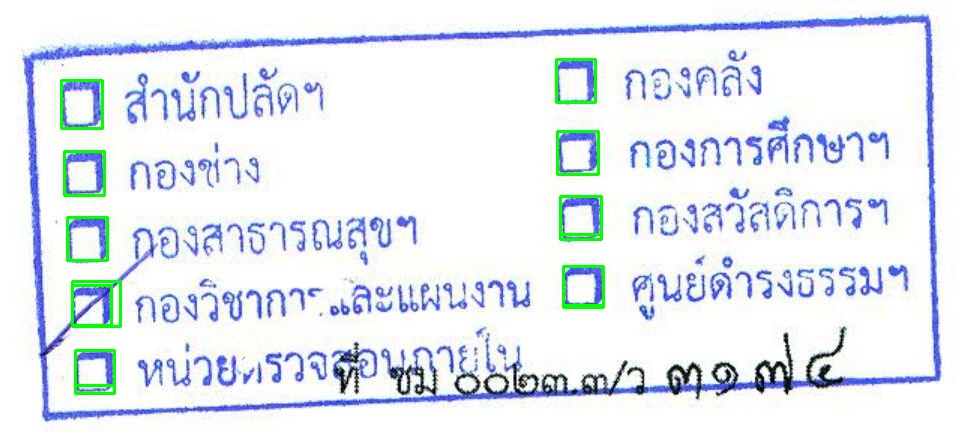 สำนักปลัดฯ
กองช่าง
กองสาธารณสุขฯ
กองวิชาการและแผนงาน
หน่วยตรวจสอบภายใน
กองคลัง
กองการศึกษาฯ
กองสวัสดิการฯ
ศูนย์ดำรงธรรมฯ
ที่ ชม ๐๐๒๓.๓/ว ๓๑๗๔